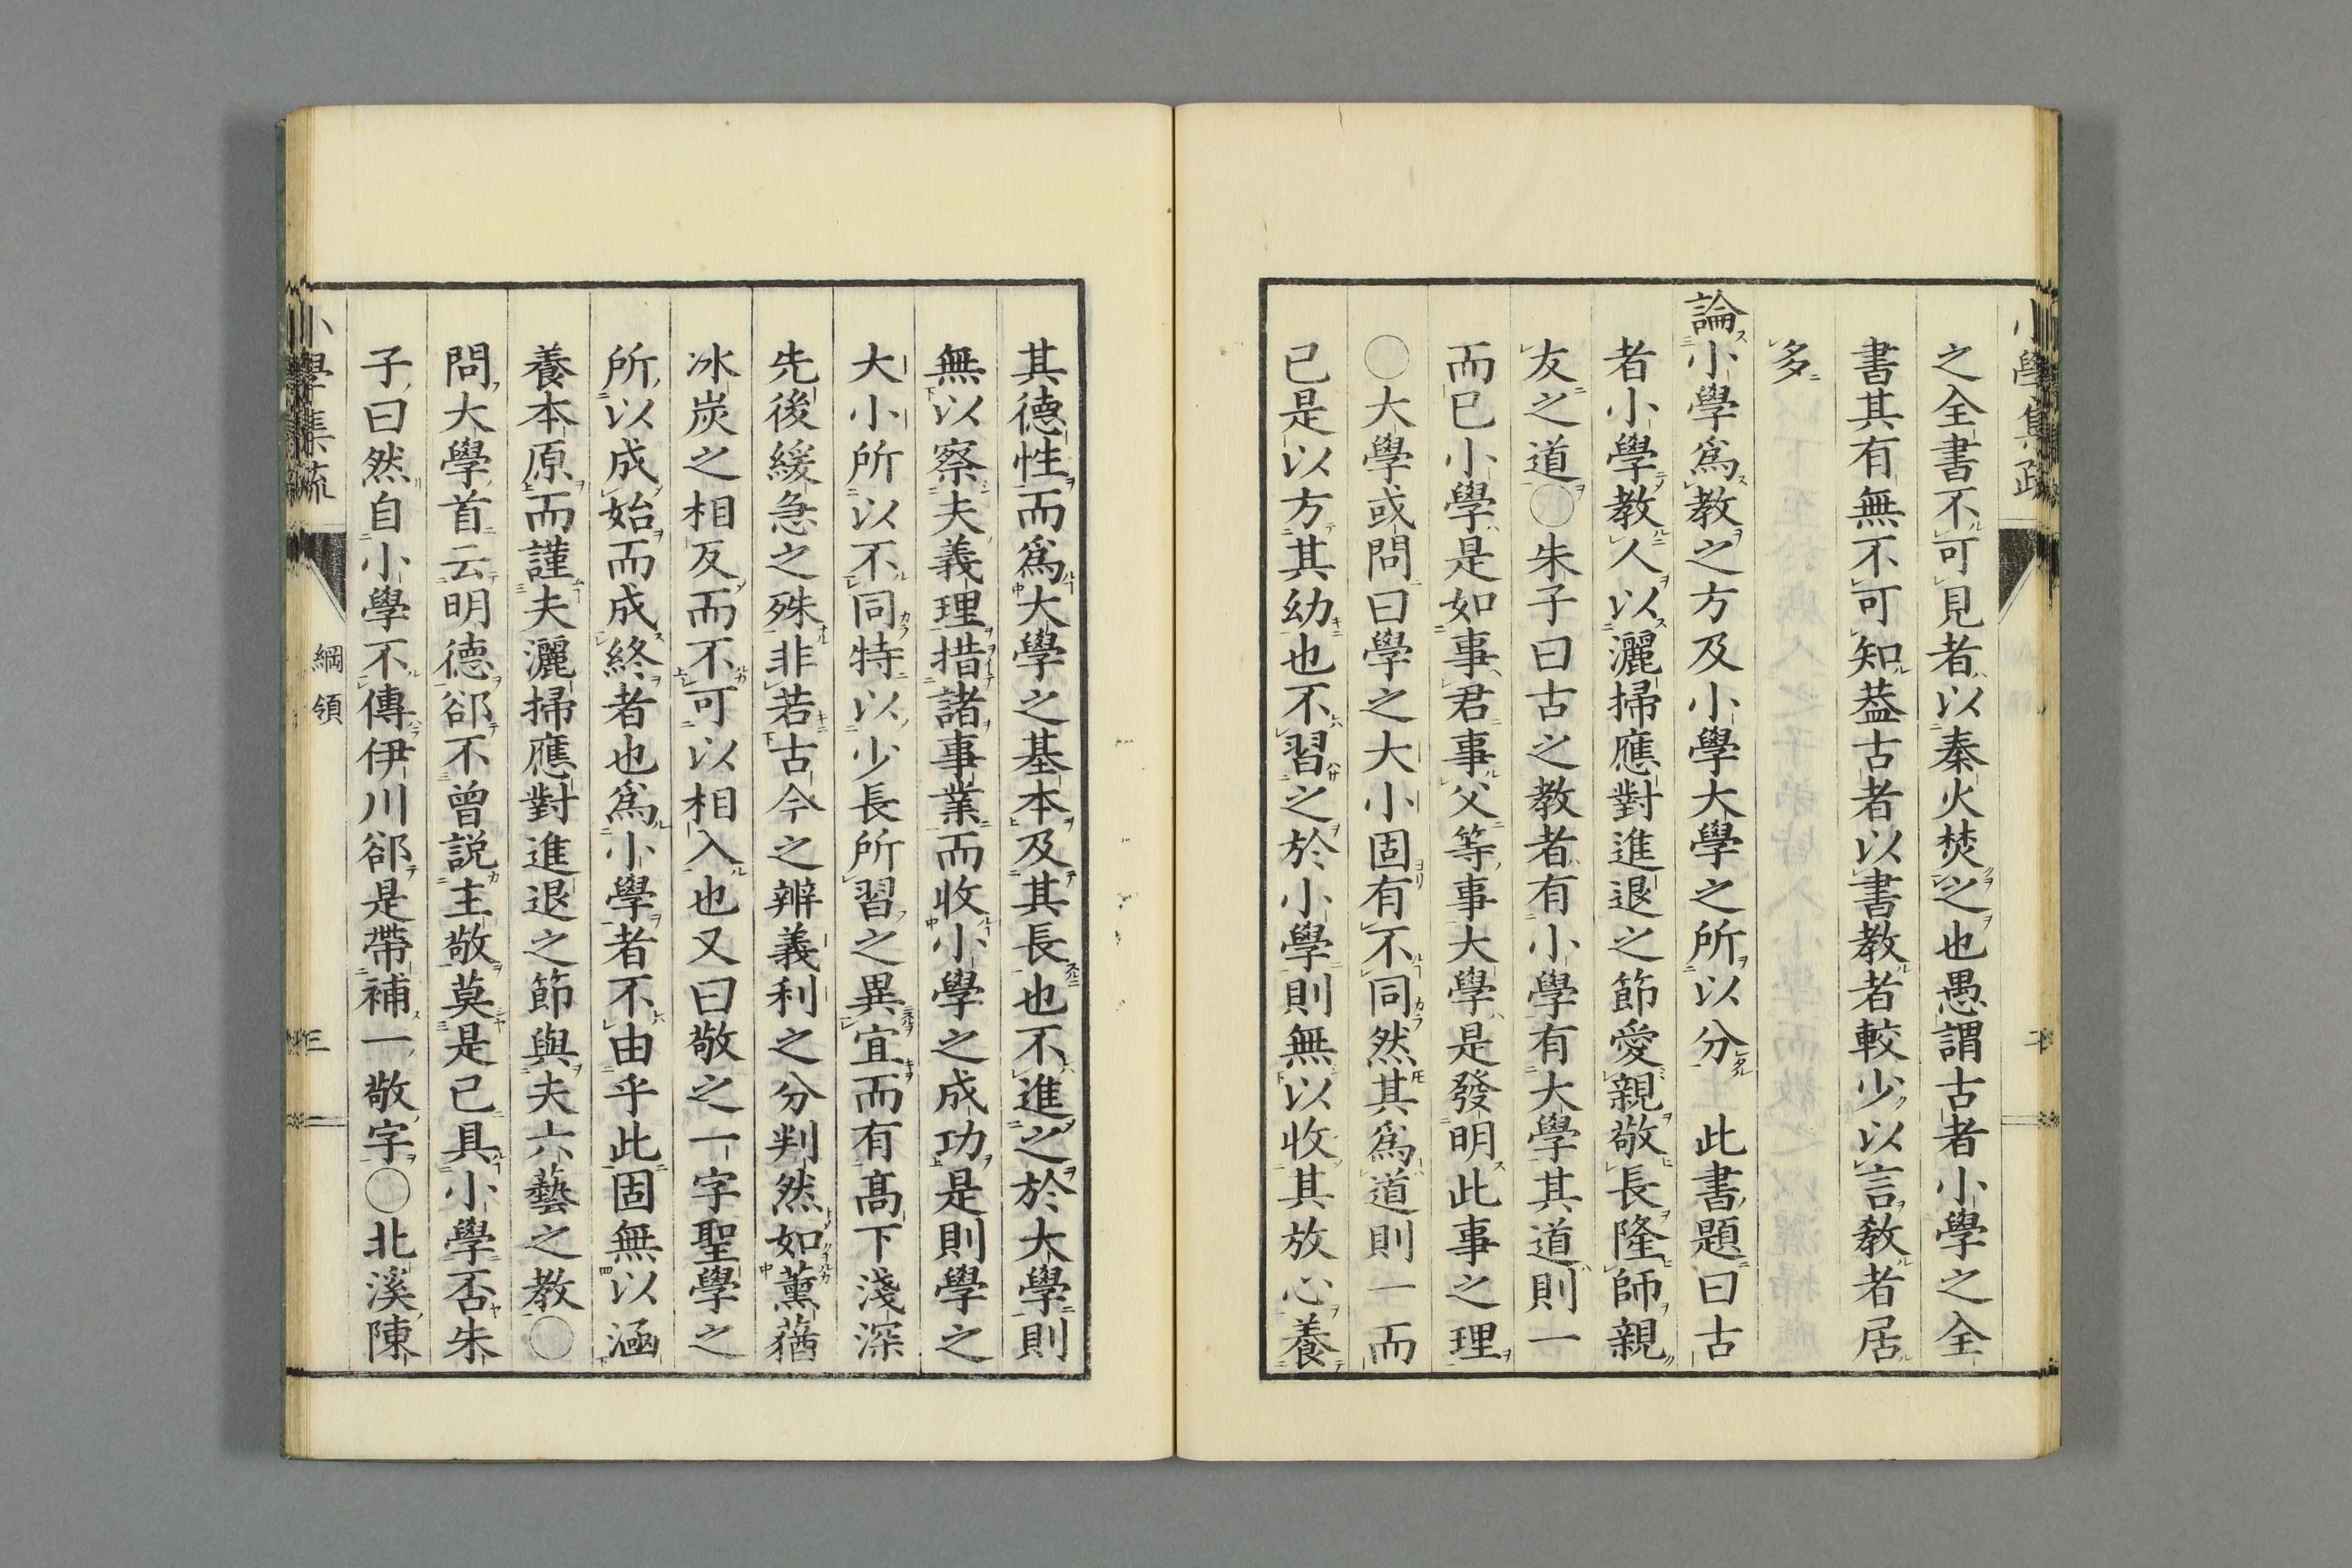 小學集疏
之全書不可見者以秦火焚之也愚謂古者小學之全
書其有無不可知葢古者以書教者較少以言教者居
多
論小學爲教之方及小學大學之所以分　此書題曰古
者小學教人以灑掃應對進退之節愛親敬長隆師親
友之道○朱子曰古之教者有小學有大學其道則一
而已小學是如事君事父等事大學是發明此事之理
○大學或問曰學之大小固有不同然其爲道則一而
已是以方其幼也不習之於小學則無以收其放心養
其德性而爲大學之基本及其長也不進之於大學則
無以察夫義理措諸事業而收小學之成功是則學之
大小所以不同特以少長所習之異宜而有髙下淺深
先後緩急之殊非若古今之辨義利之分判然如薰蕕
冰炭之相反而不可以相入也又曰敬之一字聖學之
所以成始而成終者也爲小學者不由乎此固無以涵
養本原而謹夫灑掃應對進退之節與夫六藝之教○
問大學首云明德郤不曾説主敬莫是已具小學否朱
子曰然自小學不傳伊川郤是帶補一敬字○北溪陳
小學集疏
綱領
三